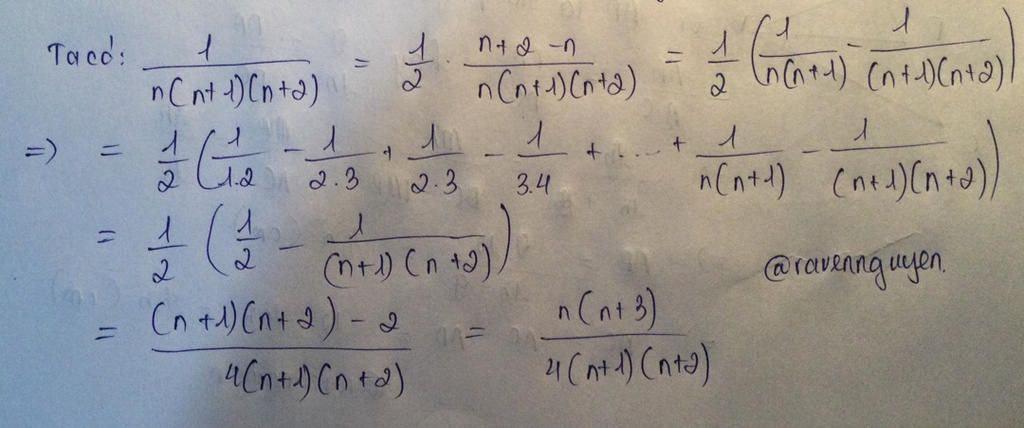 Ta có: 1/(n(n+1)(n+2)) = 1/2 · (n+2-n)/(n(n+1)(n+2)) = 1/2 (1/(n(n+1)) - 1/((n+1)(n+2)))
=> = 1/2 (1/1.2 - 1/2.3 + 1/2.3 - 1/3.4 + .... + 1/(n(n+1)) - 1/((n+1)(n+2)))
= 1/2 (1/2 - 1/((n+1)(n+2)))
@ravennguyen.
= ((n+1)(n+2) - 2)/(4(n+1)(n+2)) = n(n+3)/(4(n+1)(n+2))